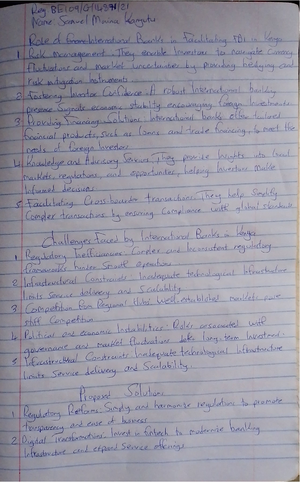 Reg BE109/G/14834/21
Name Samuel Maina Kanguru
Role of International Banks in Facilitating FDI in Kenya
1 Risk Management: They enable Investors to navigate Currency
fluctuations and market uncertainties by providing hedging and
risk mitigation instruments
2 Fostering Investor Confidence: A robust International banking
presence signals economic stability, encouraging foreign Investments
3 Providing Financing Solutions: International banks offer tailored
financial products, such as loans and trade financing, to meet the
needs of foreign Investors
4 Knowledge and Advisory Services: They provide Insights into local
markets, regulations, and opportunities, helping Investors make
Informed decisions
5 Facilitating Cross border transactions: They help Simplify
Complex transactions by ensuring Compliance with global standards
Challenges faced by International Banks in Kenya
1 Regulatory Inefficiencies: Complex and Inconsistent regulatory
frameworks hinder Smooth operations
2 Infrastructural Constraints: Inadequate technological Infrastructure
limits service delivery and scalability
3 Competition from Regional Hubs: Well established markets pose
stiff Competition
4 Political and economic Instabilities: Risks associated with
governance and market fluctuations deter long-term Investment
5 Infrastructural Constraints: Inadequate technological Infrastructure
limits Service delivery and Scalability.
Proposed Solutions
1 Regulatory Reforms: Simplify and harmonise regulations to promote
transparency and ease of business
2 Digital Transformation: Invest in fintech to modernise banking
Infrastructure and expand service offerings